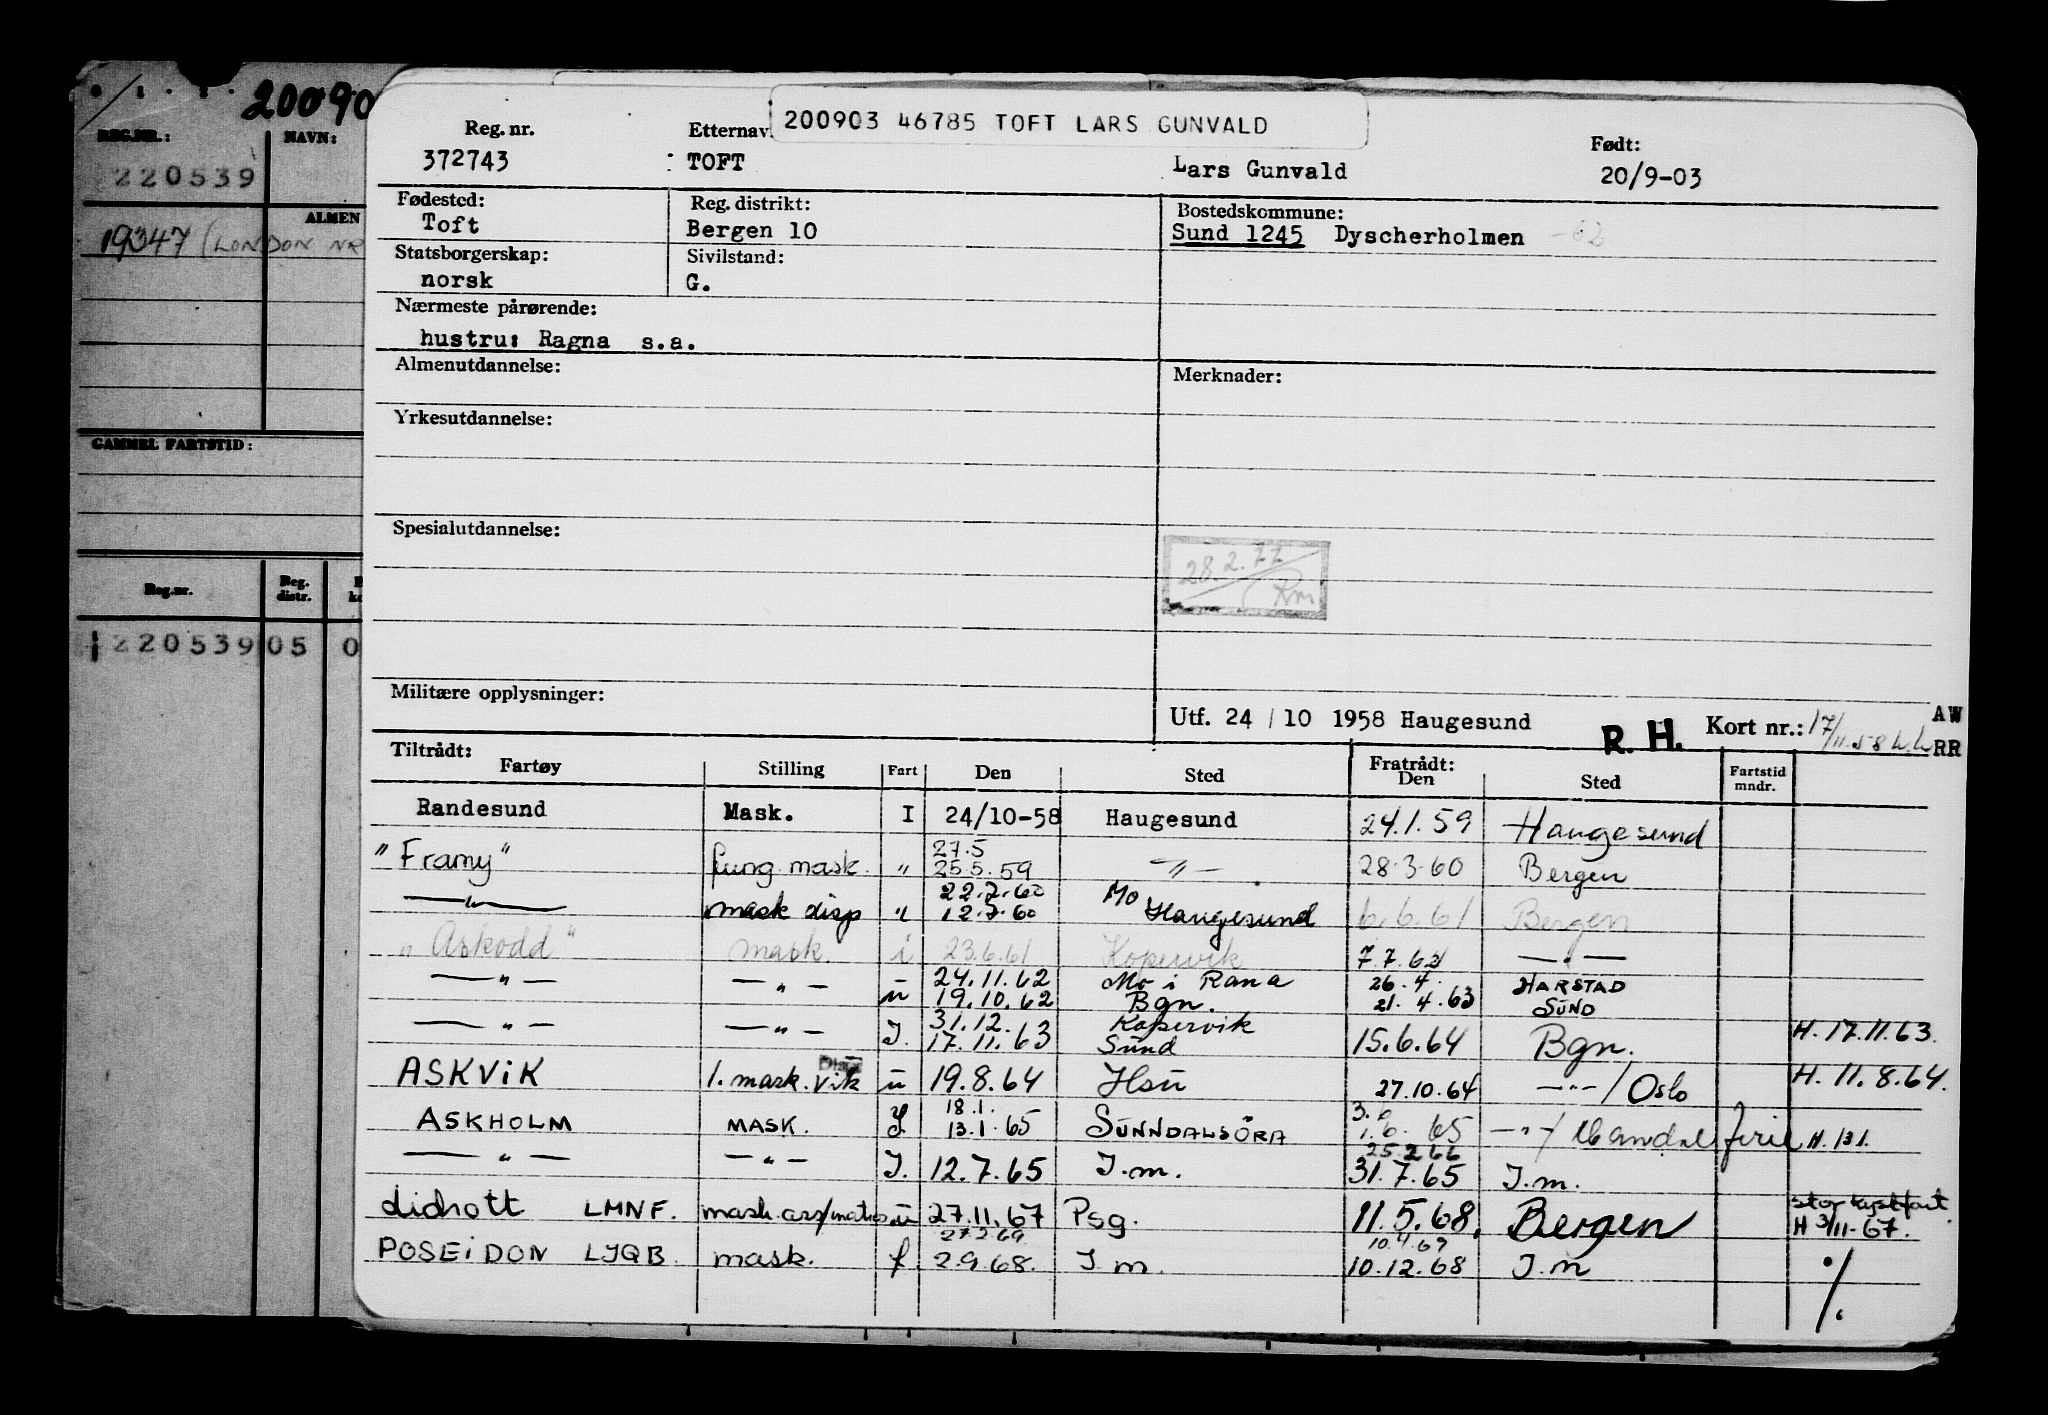 20090
REG.NR.: NAVN:
220539
ALMEN
19347 (LONDON NR
GAMMEL FARTSTID:
Reg.nr. Reg. distr.
220539 05 0
200903 46785 TOFT LARS GUNVALD
Reg. nr. Etternav Født:
372743 : TOFT Lars Gunvald 20/9-03
Fødested: Reg. distrikt: Bostedskommune:
Toft Bergen 10 Sund 1245 Dyscherholmen -62
Statsborgerskap: Sivilstand:
norsk G.
Nærmeste pårørende:
hustru: Ragna s.a.
Almenutdannelse: Merknader:
Yrkesutdannelse:
Spesialutdannelse:
28.2.77
Rm
Militære opplysninger:
Utf. 24 / 10 1958 Haugesund R. H. Kort nr.: 17/11.58 AW
RR
Tiltrådt: Fratrådt:
Fartøy Stilling Fart Den Sted Den Sted Fartstid mndr.
Randesund Mask. I 24/10-58 Haugesund 24.1.59 Haugesund
27.5
"Framy" fung. mask. " 25.5.59 —"— 28.3.60 Bergen
22.7.60 Mo
—"— mask disp " 12.7.60 Haugesund 6.6.61 Bergen
"Askodd" mask. i 23.6.61 Kopervik 7.7.62 —"—
24.11.62 Mo i Rana 26.4. HARSTAD
—"— —"— u 19.10.62 Bgn. 21.4.63 SUND
31.12. Kopervik
—"— —"— I. 17.11.63 Sund 15.6.64 Bgn. H. 17.11.63.
ASKVIK 1. mask. vik u 19.8.64 Hsu 27.10.64 —"—/Oslo H. 11.8.64.
18.1. 3.6
ASKHOLM MASK. I. 13.1.65 SUNNDALSÖRA 1.6.65 —"—/Mandal ferie H. 13.1.
25.2.66
—"— —"— I. 12.7.65 I.m. 31.7.65 I.m.
Lidrott LMNF. mask.ass/matros u 27.11.67 Psg. 11.5.68. Bergen stor kystfart H 3/11-67.
27.2.69 10.4.69
POSEIDON LJQB. mask. f 2.9.68. I m. 10.12.68 I.m %